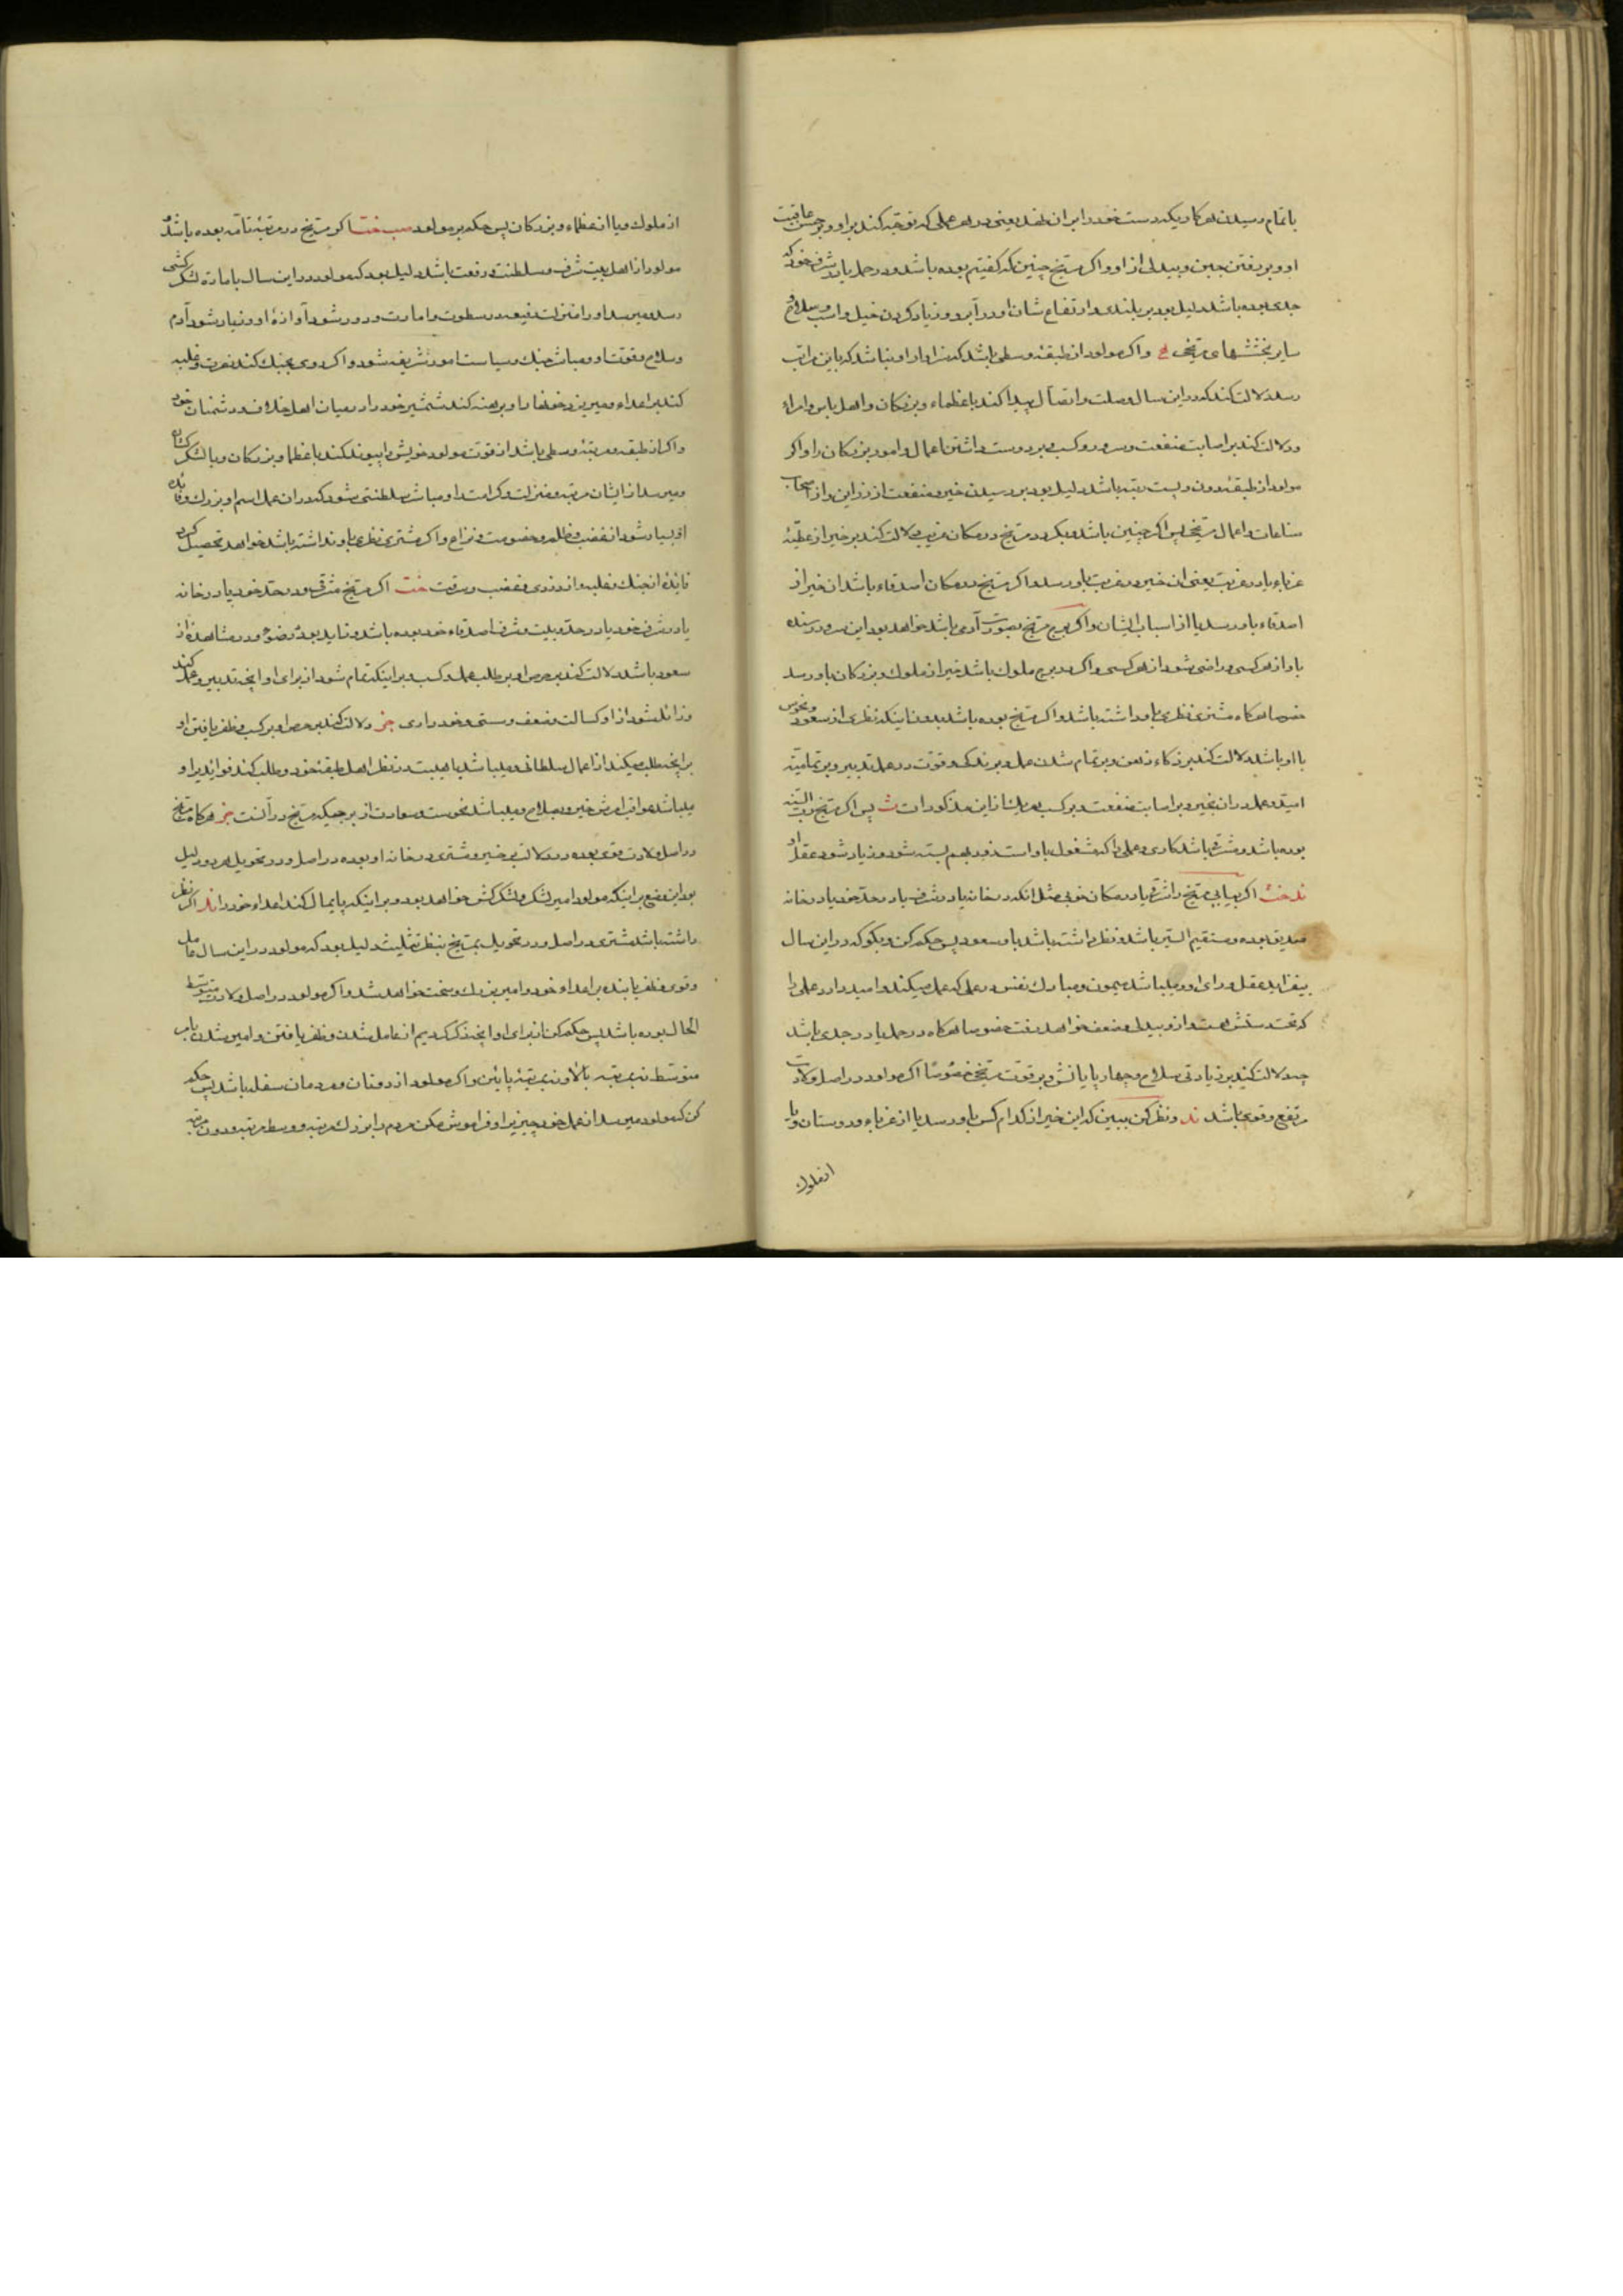 باتمام رسیدن هر کار و یکدست خود را بران نهد یعنی در هر عملی که توجه کند بر او و بر حسن عاقبت
او و بر رفتن جبن و بیدلی از او و اکر مریخ چنین که کفتیم بوده باشد و در حمل یا در شرف خود که
جدی بوده باشد دلیل بود بر بلندی و ارتفاع شان او در آبرو و زیاد کردن خیل و اسب و سلاح و
سایر بخششهای مریخی و اکر مولود از طبقهٔ وسطی باشد که سزاوار او نباشد که باین مراتب
رسد دلالت کند که در این سال وصلت و اتصال پیدا کند با عظماء و بزرکان و اهل باس و امراء
و دلالت کند بر اصابت منفعت و سرور و کسب و بر دوست داشتن اعمال و امور بزرکان را و اکر
مولود از طبقهٔ دون و پست رتبه باشد دلیل بود بر رسیدن خیر و منفعت از وزراین و از اصحاب
صناعات و اعمال مریخی پس اکر چنین باشد و بکردد مریخ در مکان غریب دلالت کند بر خیر از عطیهٔ
غرباء یا در غربت یعنی ان خیر در غربت باو رسد و اکر مریخ در مکان اصدقاء باشد ان خیر از
اصدقاء باو رسد یا از اسباب ایشان و اکر برج مریخ بصورت آدمی باشد خواهد بود این سرور رسنده
باو از هر کسی و راضی شود از هر کسی و اکر در برج ملوک باشد خیر از ملوک و بزرکان باو رسد
خصوصا هرکاه مشتری نظری باو داشته باشد و اکر مریخ بوده باشد بدون اینکه نظری از سعود و نحوس
با او باشد دلالت کند بر ذکاء ذهن و بر تمام شدن عمل و بر زندکی و قوت در عمل تدبیر و بر تمامیت
امید و عمل در ان بخیر و بر اصابت منفعت و بر کسب هر یک از این مذکورات ث پس اکر مریخ وبت السیر
بوده باشد و مشرقی باشد کاری و عملی را که مشغول باو است زود بهم بسته شود و زیاد شود عقل او
ند خت اکر بیابی مریخ را شرقی یا در مکان خوبی مثل انکه در خانه یا در شرف یا در حد خود یا در خانه
صدیق بوده و مستقیم السیر باشد و نظر داشته باشد باو سعود پس حکم کن و بکو که در این سال
بیفزاید عقل و رای او و میباشد میمون و مبارک نفس در عملی که عمل میکند و امید دارد عملی را
که تحت دستش است و از او بیدلی و ضعف خواهد رفت خصوصا هرکاه در حمل یا در جدی باشد
چه دلالت کند بر زیادتی سلاح و چهارپایانش و بر قوت مریخی خصوصًا اکر مولود در اصل ولادت
مرتفع و قوی باشد ند و نظر کن ببین که این خیر از کدام کس باو رسد یا از غرباء و دوستان و یا
از ملوک
از ملوک و یا از عظماء و بزرکان پس حکم بر مولود صب خت اکر مریخ در مرتبهٔ تامه بوده باشد و
مولود از اهل بیت شرف و سلطنت و رفعت باشد دلیل بود که مولود در این سال بامارة لشکرکشی
رسد و میرسد او را منزلت رفیعه در سطوت و امارت و دور شود آوازهٔ او و زیاد شود آدم
و سلاح و قوت او و مباشر جنک و سیاست امور شریفه شود و اکر روی بجنک کند نصرت و غلبه
کند بر اعداء و میریزد خونها را و برهنه کند شمشیر خود را در میان اهل خلاف و دشمنان خود
و اکر از طبقه و مرتبهٔ وسطی باشد از قوت مولود خویش را پیوند کند با عظما و بزرکان و یا لشکرکشان
و میرسد از ایشان مرتبه و منزلت و کرامت او و مباشر سلطنتی شود که در ان عمل اسم او بزرک و نام
او بسیار شود از غضب و ظلم و خصومت و نزاع و اکر مشتری نظری باو نداشته باشد خواهد تحصیل کرد
فایدهٔ از جنک و غلبه و از دزدی و غضب و سرقت خت اکر مریخ مشرقی بود در حد خود یا در خانه
یا در شرف خود یا در حد و بیت و شرف اصدقاء خود بوده باشد و زاید بود در ضوء و در مشاهدهٔ از
سعود باشد دلالت کند بر حرص او بر طلب عمل و کسب و بر اینکه تمام شود از برای او انچه تدبیر و عمل کند
و زائل شود از او کسالت و ضعف و سستی و خودداری جز دلالت کند بر حرص او بر کسب و ظفر یافتن او
بر انچه طلب میکند از اعمال سلطانی و میباشد با هیبت در نظر اهل طبقهٔ خود و طلب کند فواید بر او
میباشد عواقب امرش خیر و بصلاح و میباشد نحوست و سعادت از برجیکه مریخ در آنست جز هرکاه مریخ
در اصل ولادت قوی بوده و دلالت بر خیر و مشتری در خانه او بوده در اصل و در تحویل هر دو دلیل
بود این وضع بر اینکه مولود امیر لشکر و لشکرکش خواهد بود و بر اینکه پایمال کند اعداء خود را ند اکر نظر
داشته باشد مشتری در اصل و در تحویل بمریخ بنظر تثلیث دلیل بود که مولود در این سال عامل
و قوی و ظفر یابنده بر اعداء خود و امیر بزرک و سخت خواهد شد و اکر مولود در اصل ولادت متوسط
الحال بوده باشد پس حکم کن از برای او انچه ذکر کردیم از عامل شدن و ظفر یافتن و امیر شدن بامر
متوسط نه بمرتبه بالا و نه بمرتبهٔ پائین و اکر مولود از دونان و مردمان سفله باشد پس حکم
کن که مولود میرسد از عمل خود چیزیرا و فراموش مکن مردم را بزرک مرتبه و وسط مرتبه و دون مرتبه